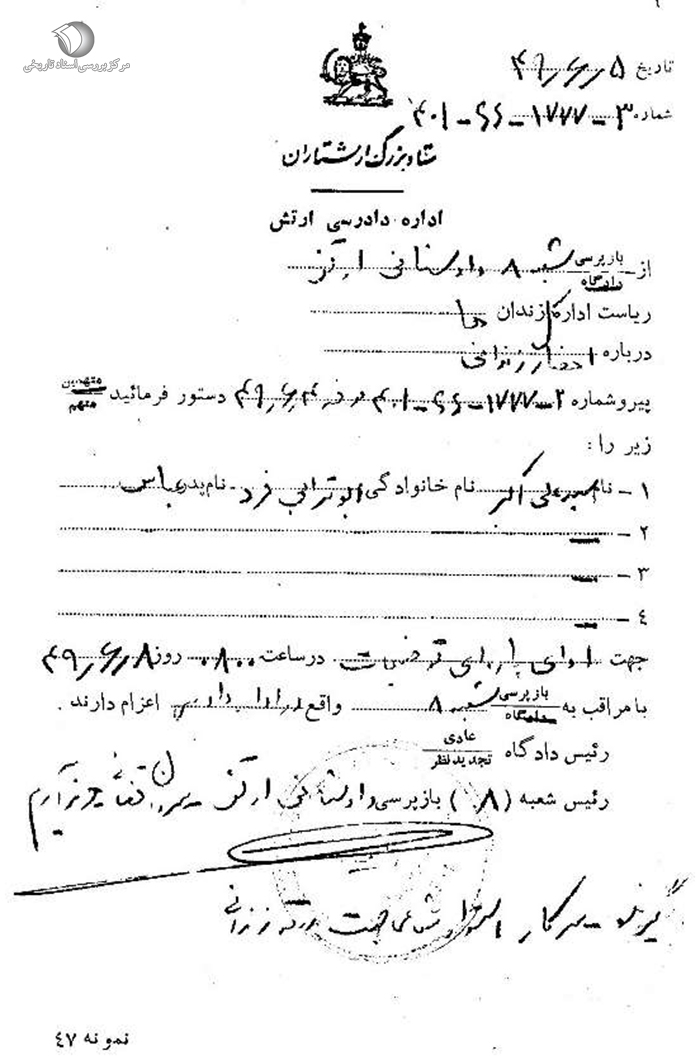 مرکز بررسی اسناد تاریخی
تاریخ ۵ر۶ر۴۹
شماره ۳-۱۷۷۷-۶۶-۴۰۱
ستاد بزرگ ارتشتاران
اداره دادرسی ارتش
از بازپرسی دادگاه شعبه ۸ دادستانی ارتش
ریاست اداره کل زندان ها
درباره احضار زندانی
پیرو شماره ۲-۱۷۷۷-۶۶-۴۰۱ ۴۹ر۶ر۴ دستور فرمائید متهمین متهم
زیر را:
۱- نام سید علی اکبر نام خانوادگی ابوترابی فرد نام پدر عباس
۲-
۳-
۴-
جهت ادای پاره‌ای توضیحات در ساعت ۰۸۰۰ روز ۸ر۶ر۴۹
با مراقب به بازپرسی دادگاه شعبه ۸ واقع در اعزام دارند.
رئیس دادگاه عادی تجدیدنظر
رئیس شعبه (۸) بازپرسی دادستانی ارتش
گیرنده
نمونه ۴۷